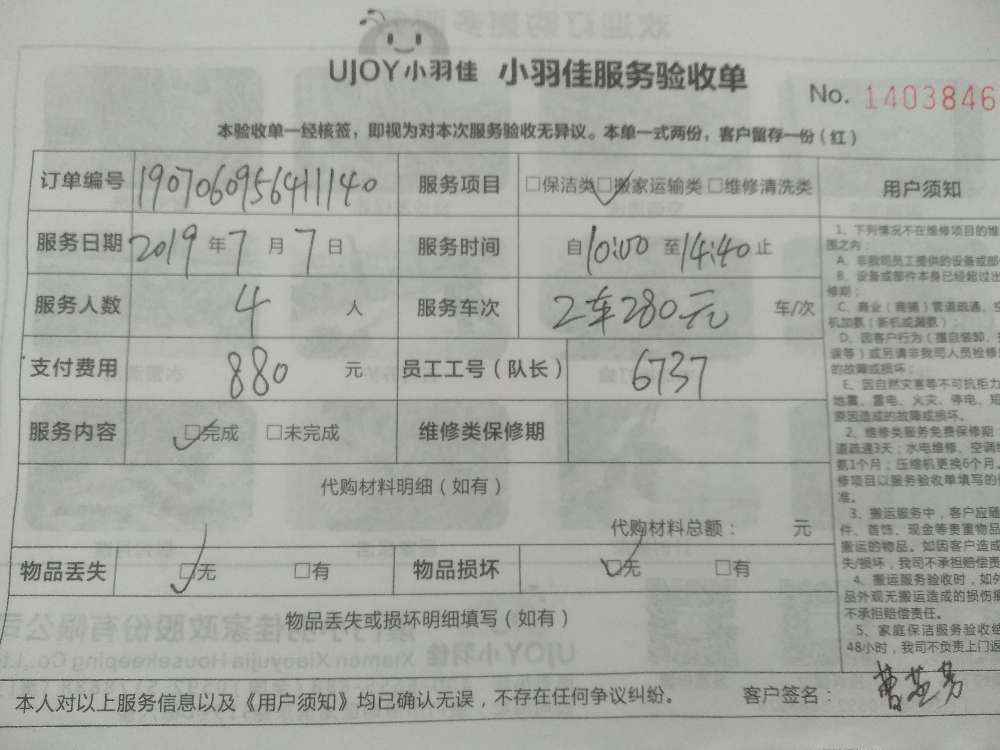 UJOY小羽佳 小羽佳服务验收单
No. 1403846
本验收单一经核签，即视为对本次服务验收无异议。本单一式两份，客户留存一份（红）
订单编号 190706095641140 服务项目 □保洁类 ☑搬家运输类 □维修清洗类
服务日期 2019年7月7日 服务时间 自10:00至14:40止
服务人数 4 人 服务车次 2车280元 车/次
支付费用 880 元 员工工号（队长） 6737
服务内容 ☑完成 □未完成 维修类保修期
代购材料明细（如有）
代购材料总额： 元
物品丢失 ☑无 □有 物品损坏 ☑无 □有
物品丢失或损坏明细填写（如有）
本人对以上服务信息以及《用户须知》均已确认无误，不存在任何争议纠纷。 客户签名：
用户须知
1、下列情况不在维修项目的维
围之内：
A、非我司员工提供的设备或部
B、设备或部件本身已经超过出
修期；
C、商业（商铺）管道疏通、空
机加氨（新机或漏氨）；
D、因客户行为（擅自装卸、
误等）或另请非我司人员检修
的故障或损坏；
E、因自然灾害等不可抗拒力
地震、雷电、火灾、停电、短
原因造成的故障或损坏。
2、维修类服务免费保修期：
道疏通3天；水电维修、空调
氨1个月；压缩机更换6个月。
修项目以服务验收单填写的
准。
3、搬运服务中，客户应随
件、首饰、现金等贵重物品
搬运的物品。如因客户造成
失/损坏，我司不承担赔偿责
4、搬运服务验收时，如外
品外观无搬运造成的损伤
不承担赔偿责任。
5、家庭保洁服务验收
48小时，我司不负责上门返